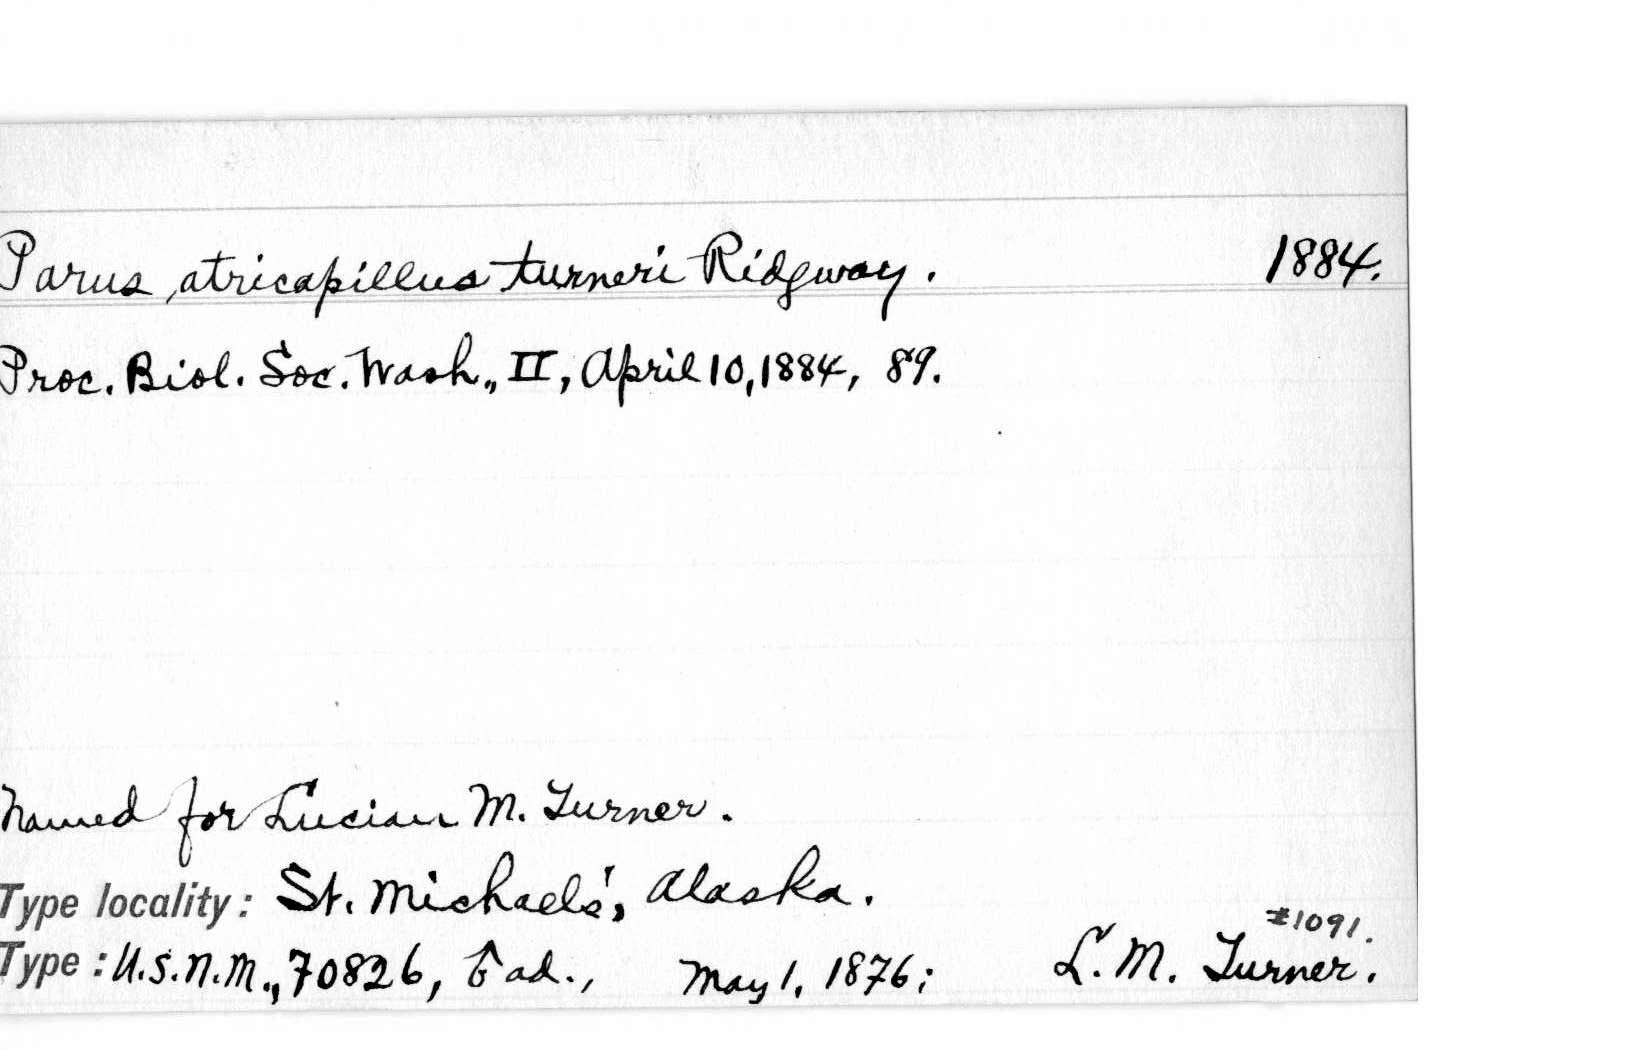 Parus atricapillus turneri Ridgway. 1884.
Proc. Biol. Soc. Wash., II, April 10, 1884, 89.
Named for Lucien M. Turner.
Type locality: St. Michaels', Alaska.
#1091.
Type: U.S.N.M., 70826, ♂ ad., May 1, 1876; L. M. Turner.